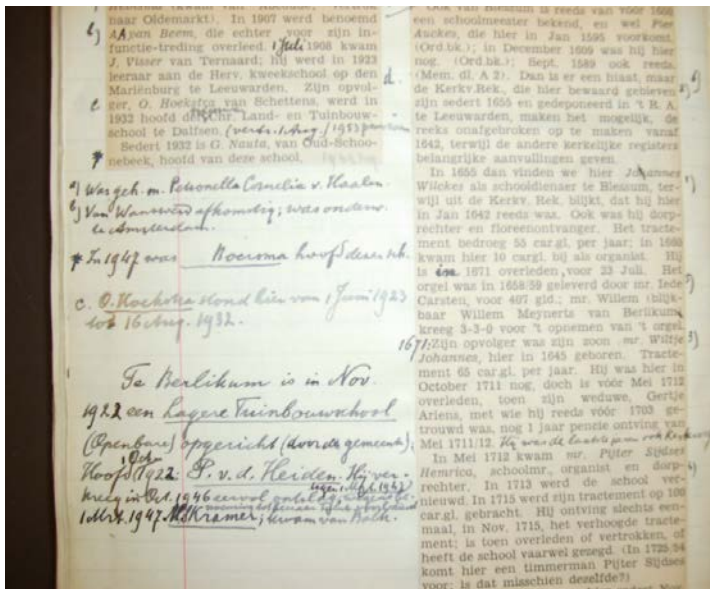 naar Oldemarkt). In 1907 werd benoemd
b) A. pan Beem, die echter voor zijn in-
functie-treding overleed. 1 Juli 1908 kwam
J. Visser van Ternaard; hij werd in 1923
leeraar aan de Herv. kweekschool op den
Mariënburg te Leeuwarden. Zijn opvol-
c ger, O. Hoekstra van Schettens, werd in
1932 hoofd der Chr. Land- en Tuinbouw-
school te Dalfsen.
* Sedert 1932 is G. Nauta, van Oud-Schoo-
nebeek, hoofd van deze school.
a) Was geh. m. Petronella Cornelia v. Haalen.
b) Van Waaxens afkomstig; was onderw.
te Amsterdam.
* In 1947 was Boersma hoofd dezer sch.
c. O. Hoekstra stond hier van 1 Juni 1923
tot 16 Aug. 1932.
Te Berlikum is in Nov.
1922 een Lagere Tuinbouwschool
(Openbare) opgericht (door de gemeente);
Hoofd 1922: P. v. d. Heiden. Hij ver-
kreeg in Oct. 1946 eervol ontslag
1 Mrt. 1947 M. Kramer; kwam van Balk.
d.
Ook van Blessum is reeds van vóór 1600
een schoolmeester bekend, en wel Pier
Auckes, die hier in Jan 1595 voorkomt.
(Ord.bk.); in December 1609 was hij hier
nog. (Ord.bk.); Sept. 1589 ook reeds,
(Mem. dl. A 2). Dan is er een hiaat, maar
de Kerkv.Rek., die hier bewaard gebleven
zijn sedert 1655 en gedeponeerd in 't R. A.
te Leeuwarden, maken het mogelijk, de
reeks onafgebroken op te maken vanaf
1642, terwijl de andere kerkelijke registers
belangrijke aanvullingen geven.
In 1655 dan vinden we hier Johannes
Wilckes als schooldienaer te Blessum, ter-
wijl uit de Kerkv. Rek. blijkt, dat hij hier
in Jan 1642 reeds was. Ook was hij dorp-
rechter en floreenontvanger. Het tracte-
ment bedroeg 55 car.gl. per jaar; in 1660
kwam hier 10 cargl. bij als organist. Hij
is in 1671 overleden, voor 23 Juli. Het
orgel was in 1658/59 geleverd door mr. Iede
Carsten, voor 407 gld.; mr. Willem (blijk-
baar Willem Meynerts van Berlikum)
kreeg 3-3-0 voor 't opnemen van 't orgel.
1671: Zijn opvolger was zijn zoon mr. Wiltje 3)
Johannes, hier in 1645 geboren. Tracte-
ment 65 car.gl. per jaar. Hij was hier in
October 1711 nog, doch is vóór Mei 1712
overleden, toen zijn weduwe, Gertje
Ariens, met wie hij reeds vóór 1703 ge-
trouwd was, nog 1 jaar pencie ontving van
Mei 1711/12.
In Mei 1712 kwam mr. Pijter Sijdses
Hemrica, schoolmr., organist en dorp-
rechter. In 1713 werd de school ver-
nieuwd. In 1715 werd zijn tractement op 100
car.gl. gebracht. Hij ontving slechts een-
maal, in Nov. 1715, het verhoogde tracte-
ment; is toen overleden of vertrokken, of
heeft de school vaarwel gezegd. (In 1725/34
komt hier een timmerman Pijter Sijdses
voor; is dat misschien dezelfde?)